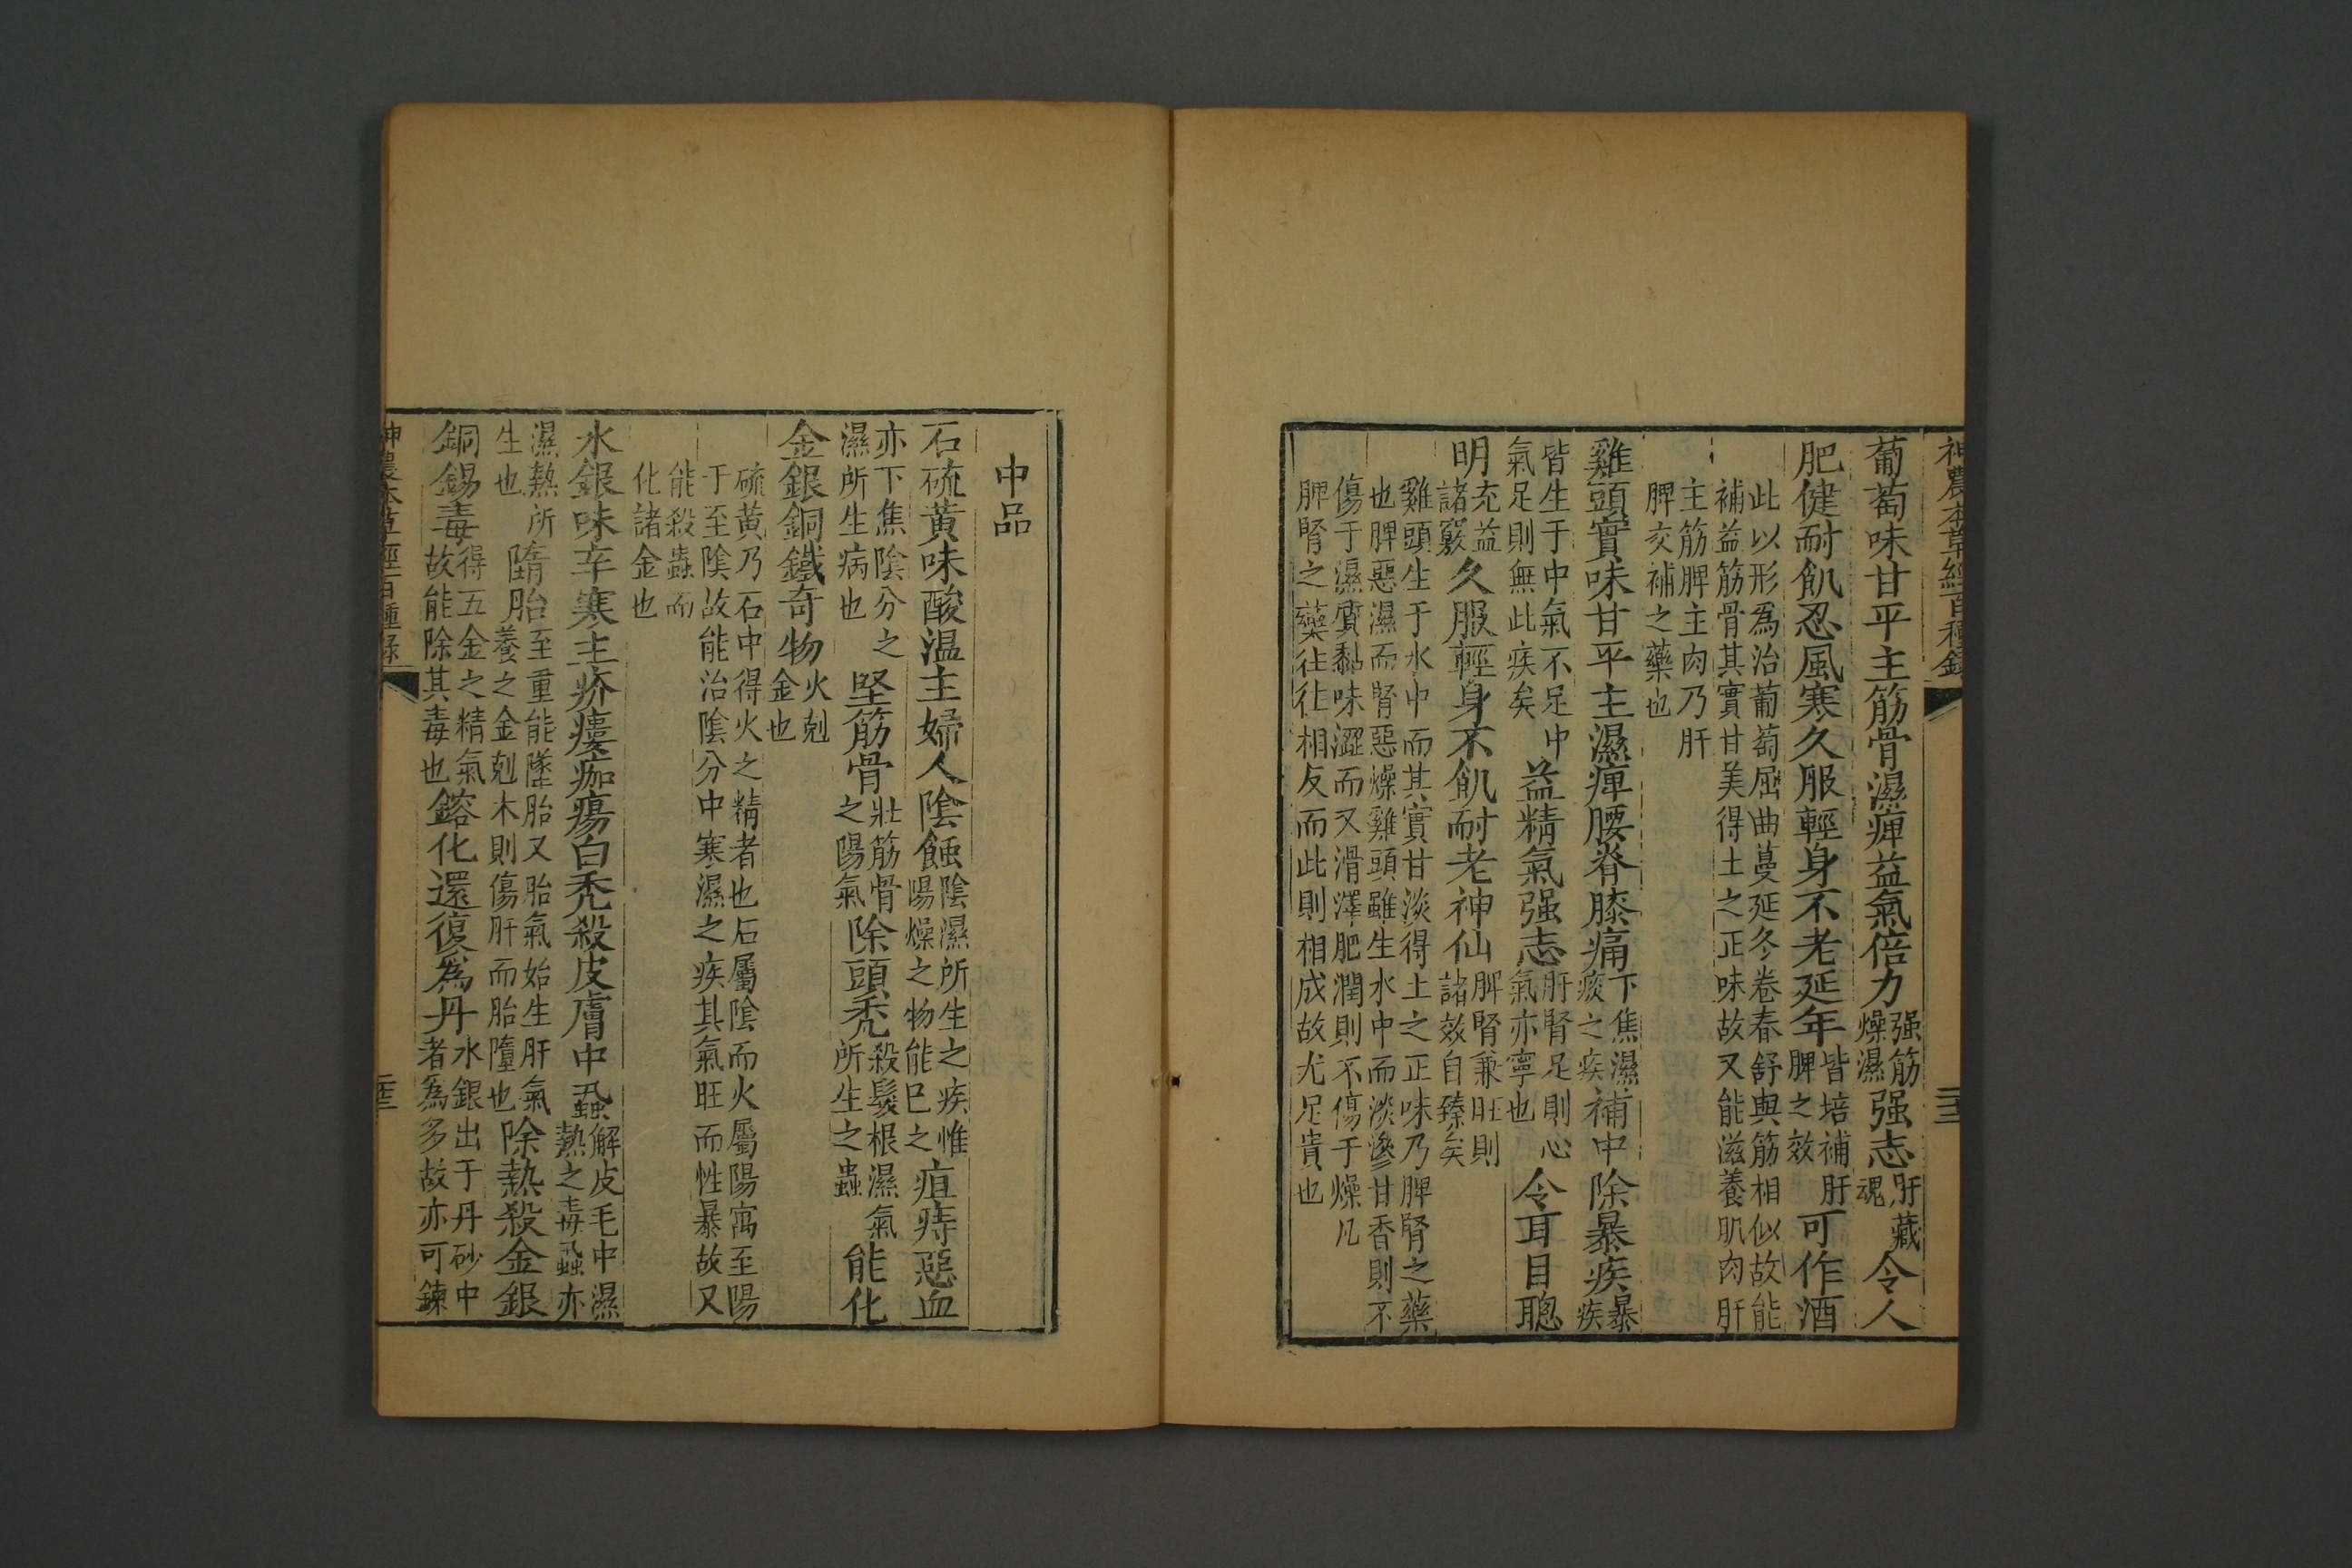 神農本草經百種錄 二十二
葡萄味甘平主筋骨濕痺益氣倍力强筋燥濕强志肝藏魂令人
肥健耐飢忍風寒久服輕身不老延年皆培補肝脾之效可作酒
此以形爲治葡萄屈曲蔓延冬卷春舒與筋相似故能
補益筋骨其實甘美得土之正味故又能滋養肌肉肝
主筋脾主肉乃肝
脾交補之藥也
雞頭實味甘平主濕痺腰脊膝痛下焦濕痰之疾補中除暴疾暴疾
皆生于中氣不足中氣足則無此疾矣益精氣强志肝腎足則心氣亦寧也令耳目聰
明充益諸竅久服輕身不飢耐老神仙脾腎兼旺則諸效自臻矣
雞頭生于水中而其實甘淡得土之正味乃脾腎之藥
也脾惡濕而腎惡燥雞頭雖生水中而淡滲甘香則不
傷于濕質黏味澀而又滑澤肥潤則不傷于燥凡
脾腎之藥往往相反而此則相成故尤足貴也
中品
石硫黃味酸温主婦人陰蝕陰濕所生之疾惟陽燥之物能已之疽痔惡血
亦下焦陰分之濕所生病也堅筋骨壯筋骨之陽氣除頭禿殺髮根濕氣所生之蟲能化
金銀銅鐵奇物火剋金也
硫黃乃石中得火之精者也石屬陰而火屬陽寓至陽
于至陰故能治陰分中寒濕之疾其氣旺而性暴故又
能殺蟲而
化諸金也
水銀味辛寒主疥瘻痂瘍白禿殺皮膚中蝨解皮毛中濕熱之毒蝨亦
濕熱所生也墮胎至重能墜胎又胎氣始生肝氣養之金剋木則傷肝而胎墮也除熱殺金銀
銅錫毒得五金之精氣故能除其毒也鎔化還復為丹水銀出于丹砂中者爲多故亦可鍊
神農本草經百種錄 二十三